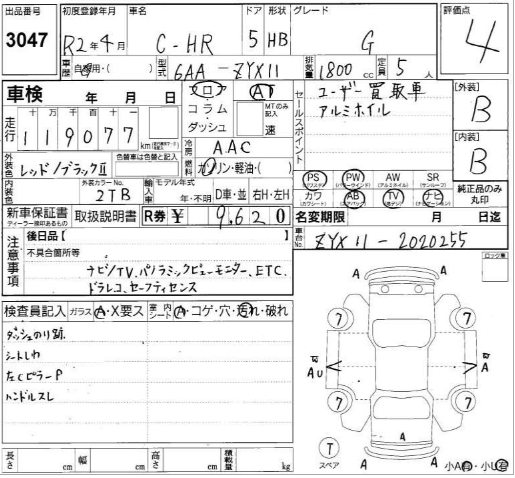 出品番号 初度登録年月 車名 ドア 形状 グレード 評価点
3047 R2年4月 C-HR 5 HB G 4
車歴 自家用・( ) 型式 6AA-ZYX11 排気量 1800 cc 定員 5 人
車検 年 月 日 フロア AT セールスポイント ユーザー買取車 [外装]
コラム MTのみ記入 アルミホイル B
十万 万 千 百 十 一 ダッシュ 速
走行 119077 km [内装]
冷房 AAC B
外装色 レッド/ブラックⅡ 色替車は色替と記入 燃料 ガソリン・軽油・( )
PS PW AW SR 純正品のみ丸印
(パワステ) (パワーウインド) (アルミホイル) (サンルーフ)
内装色 外装カラーNo. 2TB 輸入車 モデル年式 年・不明 D車・並 右H・左H カワ AB TV ナビ
新車保証書 取扱説明書 R券 ¥ 9,620 名変期限 月 日迄
ディーラー捺印あるもの
注意事項 後日品【 】 車台No. ZYX11-2020255
不具合箇所等 ロック車
ナビ/TV.パノラミックビューモニター、ETC.
ドラレコ、セーフティセンス
検査員記入 ガラス A・X要ス 室内シート A・コゲ・穴・汚れ・破れ
A
ダッシュのり跡. 7 7
シートしわ
左CピラーP AU A
ハンドルスレ 7 7
A
T A A A
スペア 小A有・小U有
長さ cm 幅 cm 高さ cm 積載量 kg